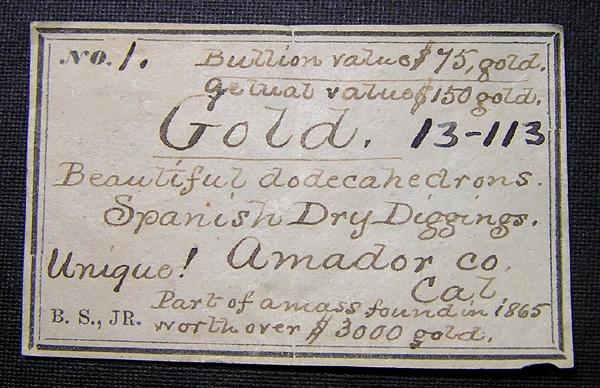 No. 1. Bullion value $75, gold.
Actual value $150 gold.
Gold. 13-113
Beautiful dodecahedrons.
Spanish Dry Diggings.
Unique! Amador co.
Cal
Part of a mass found in 1865
B. S., JR. worth over $3000 gold.